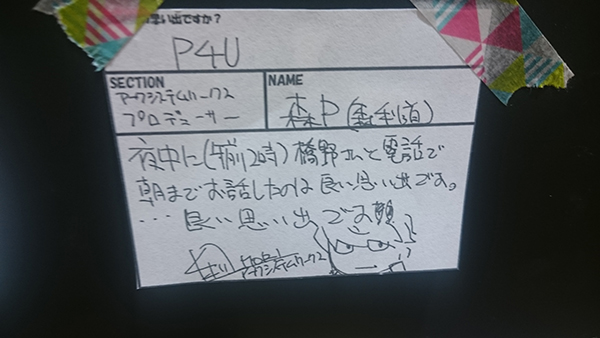 思い出ですか?
P4U
SECTION
NAME
アークシステムワークス
プロデューサー
森P(森利道)
夜中に(午前2時)橋野さんと電話で
朝までお話したのは良い思い出です。
…良い思い出です
アークシステムワークス